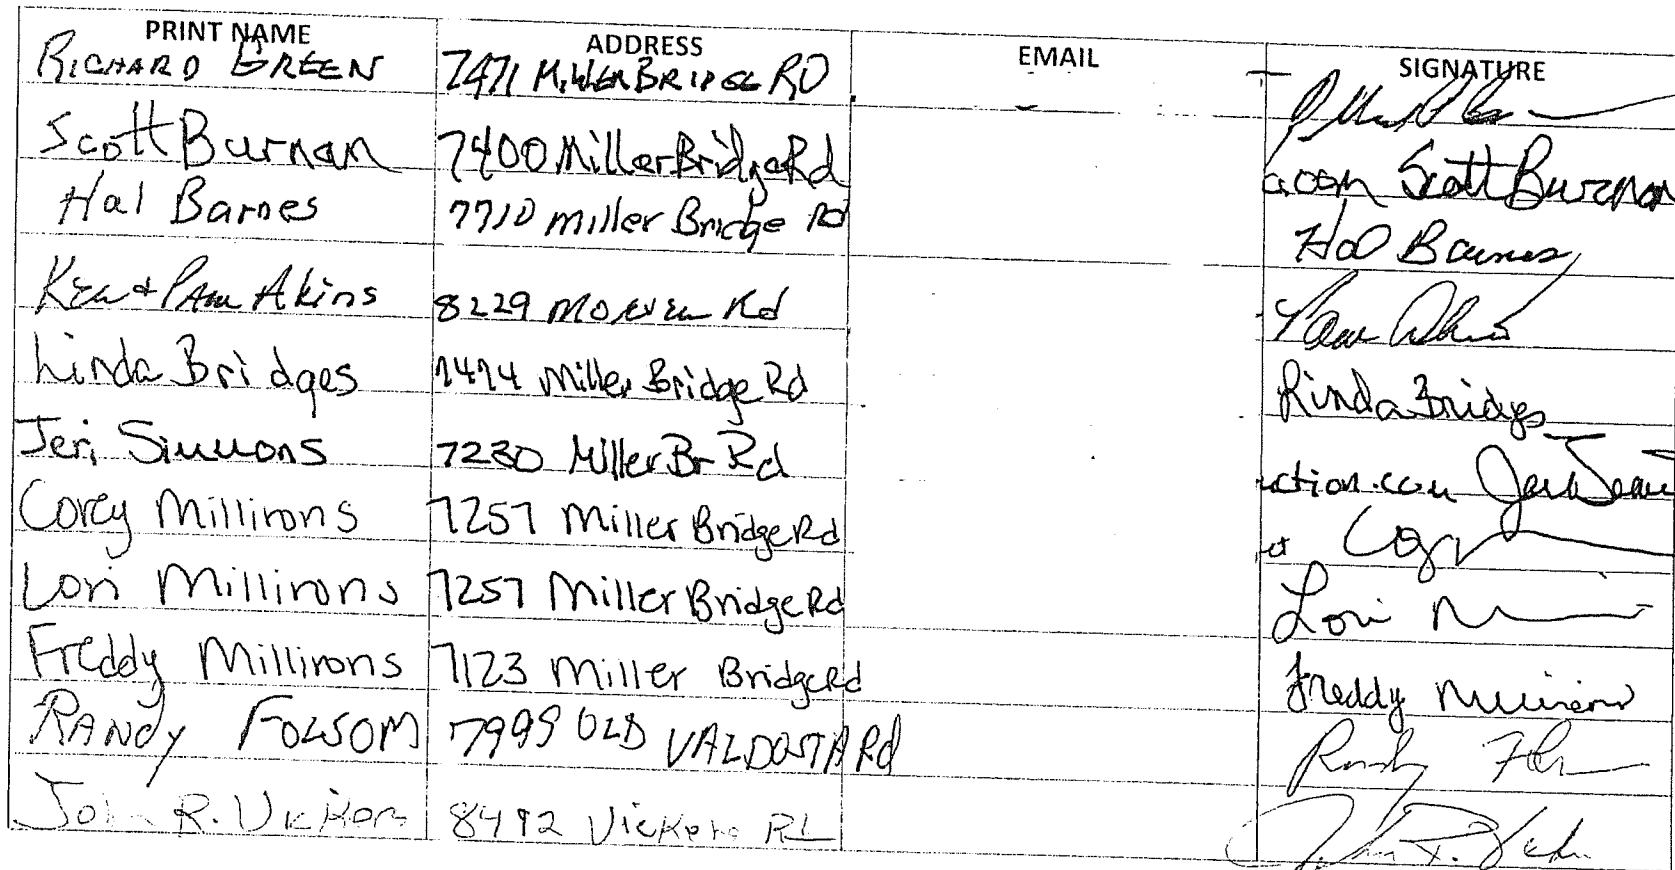 PRINT NAME ADDRESS EMAIL SIGNATURE
RICHARD GREEN 7471 MILLER BRIDGE RD
Scott Burnam 7400 Miller Bridge Rd acom Scott Burnam
Hal Barnes 7710 Miller Bridge Rd Hal Barnes
Ken + Pam Akins 8229 MORVEN Rd Pam Akins
Linda Bridges 7474 Miller Bridge Rd Linda Bridges
Jeri Simmons 7230 Miller Br Rd ction.com
Corey Millirons 7257 Miller Bridge Rd
Lori Millirons 7257 Miller Bridge Rd Lori M
Freddy Millirons 7123 Miller Bridge Rd Freddy Millirons
RANDY FOLSOM 7999 OLD VALDOSTA Rd Randy
John R. Vickers 8492 Vickers Rd